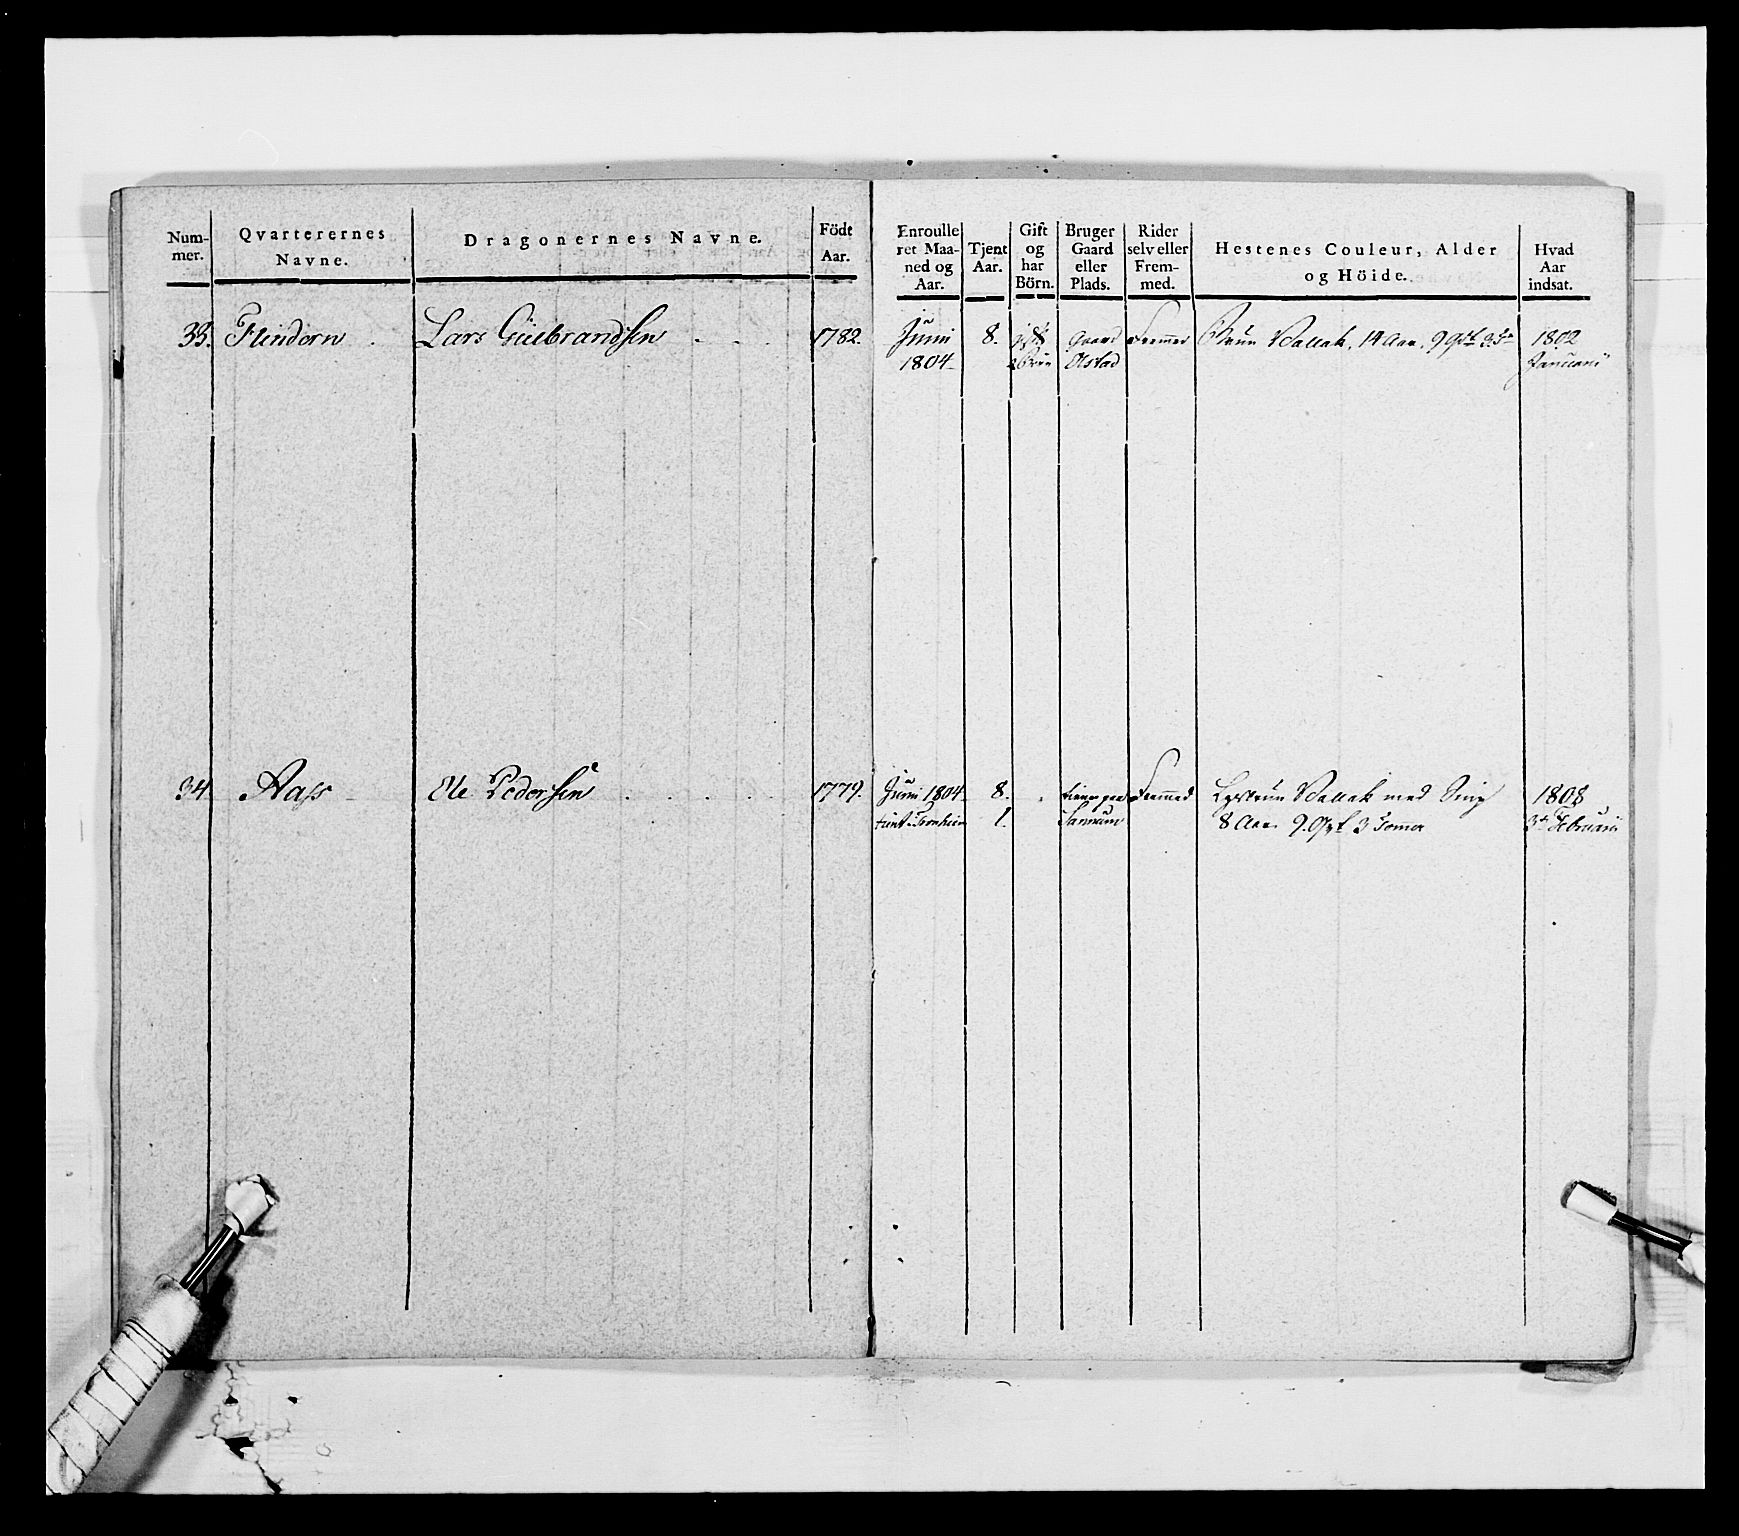 Num-
mer.
Qvarterernes
Navne.
Dragonernes Navne.
Födt
Aar.
Enroulle
ret Maa-
ned og
Aar.
Tjent
Aar.
Gift
og
har
Börn.
Bruger
Gaard
eller
Plads.
Rider
selv eller
Frem-
med.
Hestenes Couleur, Alder
og Höide.
Hvad
Aar
indsat.
33. Flindern Lars Gulbrandsen 1782. Juni 8. gift gaard Fremmed Brun Vallak, 14 Aar, 9 Qrt 3 T 1802
1804 Alstad Januarii
34 Aass Ole Pedersen 1779. Juni 1804 8. tiener paa Fremmed Lysbrun Vallak med
tient Tronhiem 1. 8 Aar 9. Qrt 3 Tommer
1808
3 Februarii